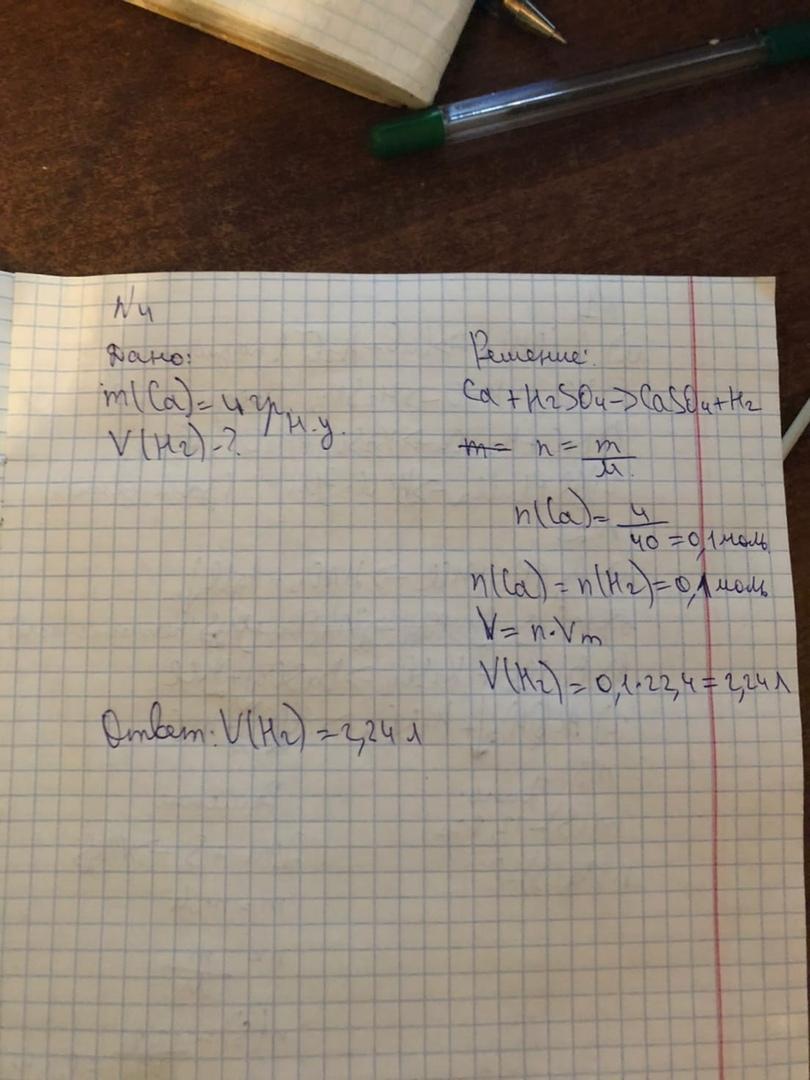 N4
Дано:
m(Ca)=4 гр н.у.
V(H2)-?
Решение:
Ca+H2SO4->CaSO4+H2
m= n=m/M.
n(Ca)=4/40=0,1моль
n(Ca)=n(H2)=0,1моль
V=n·Vm
V(H2)=0,1·22,4=2,24л
Ответ: V(H2)=2,24 л